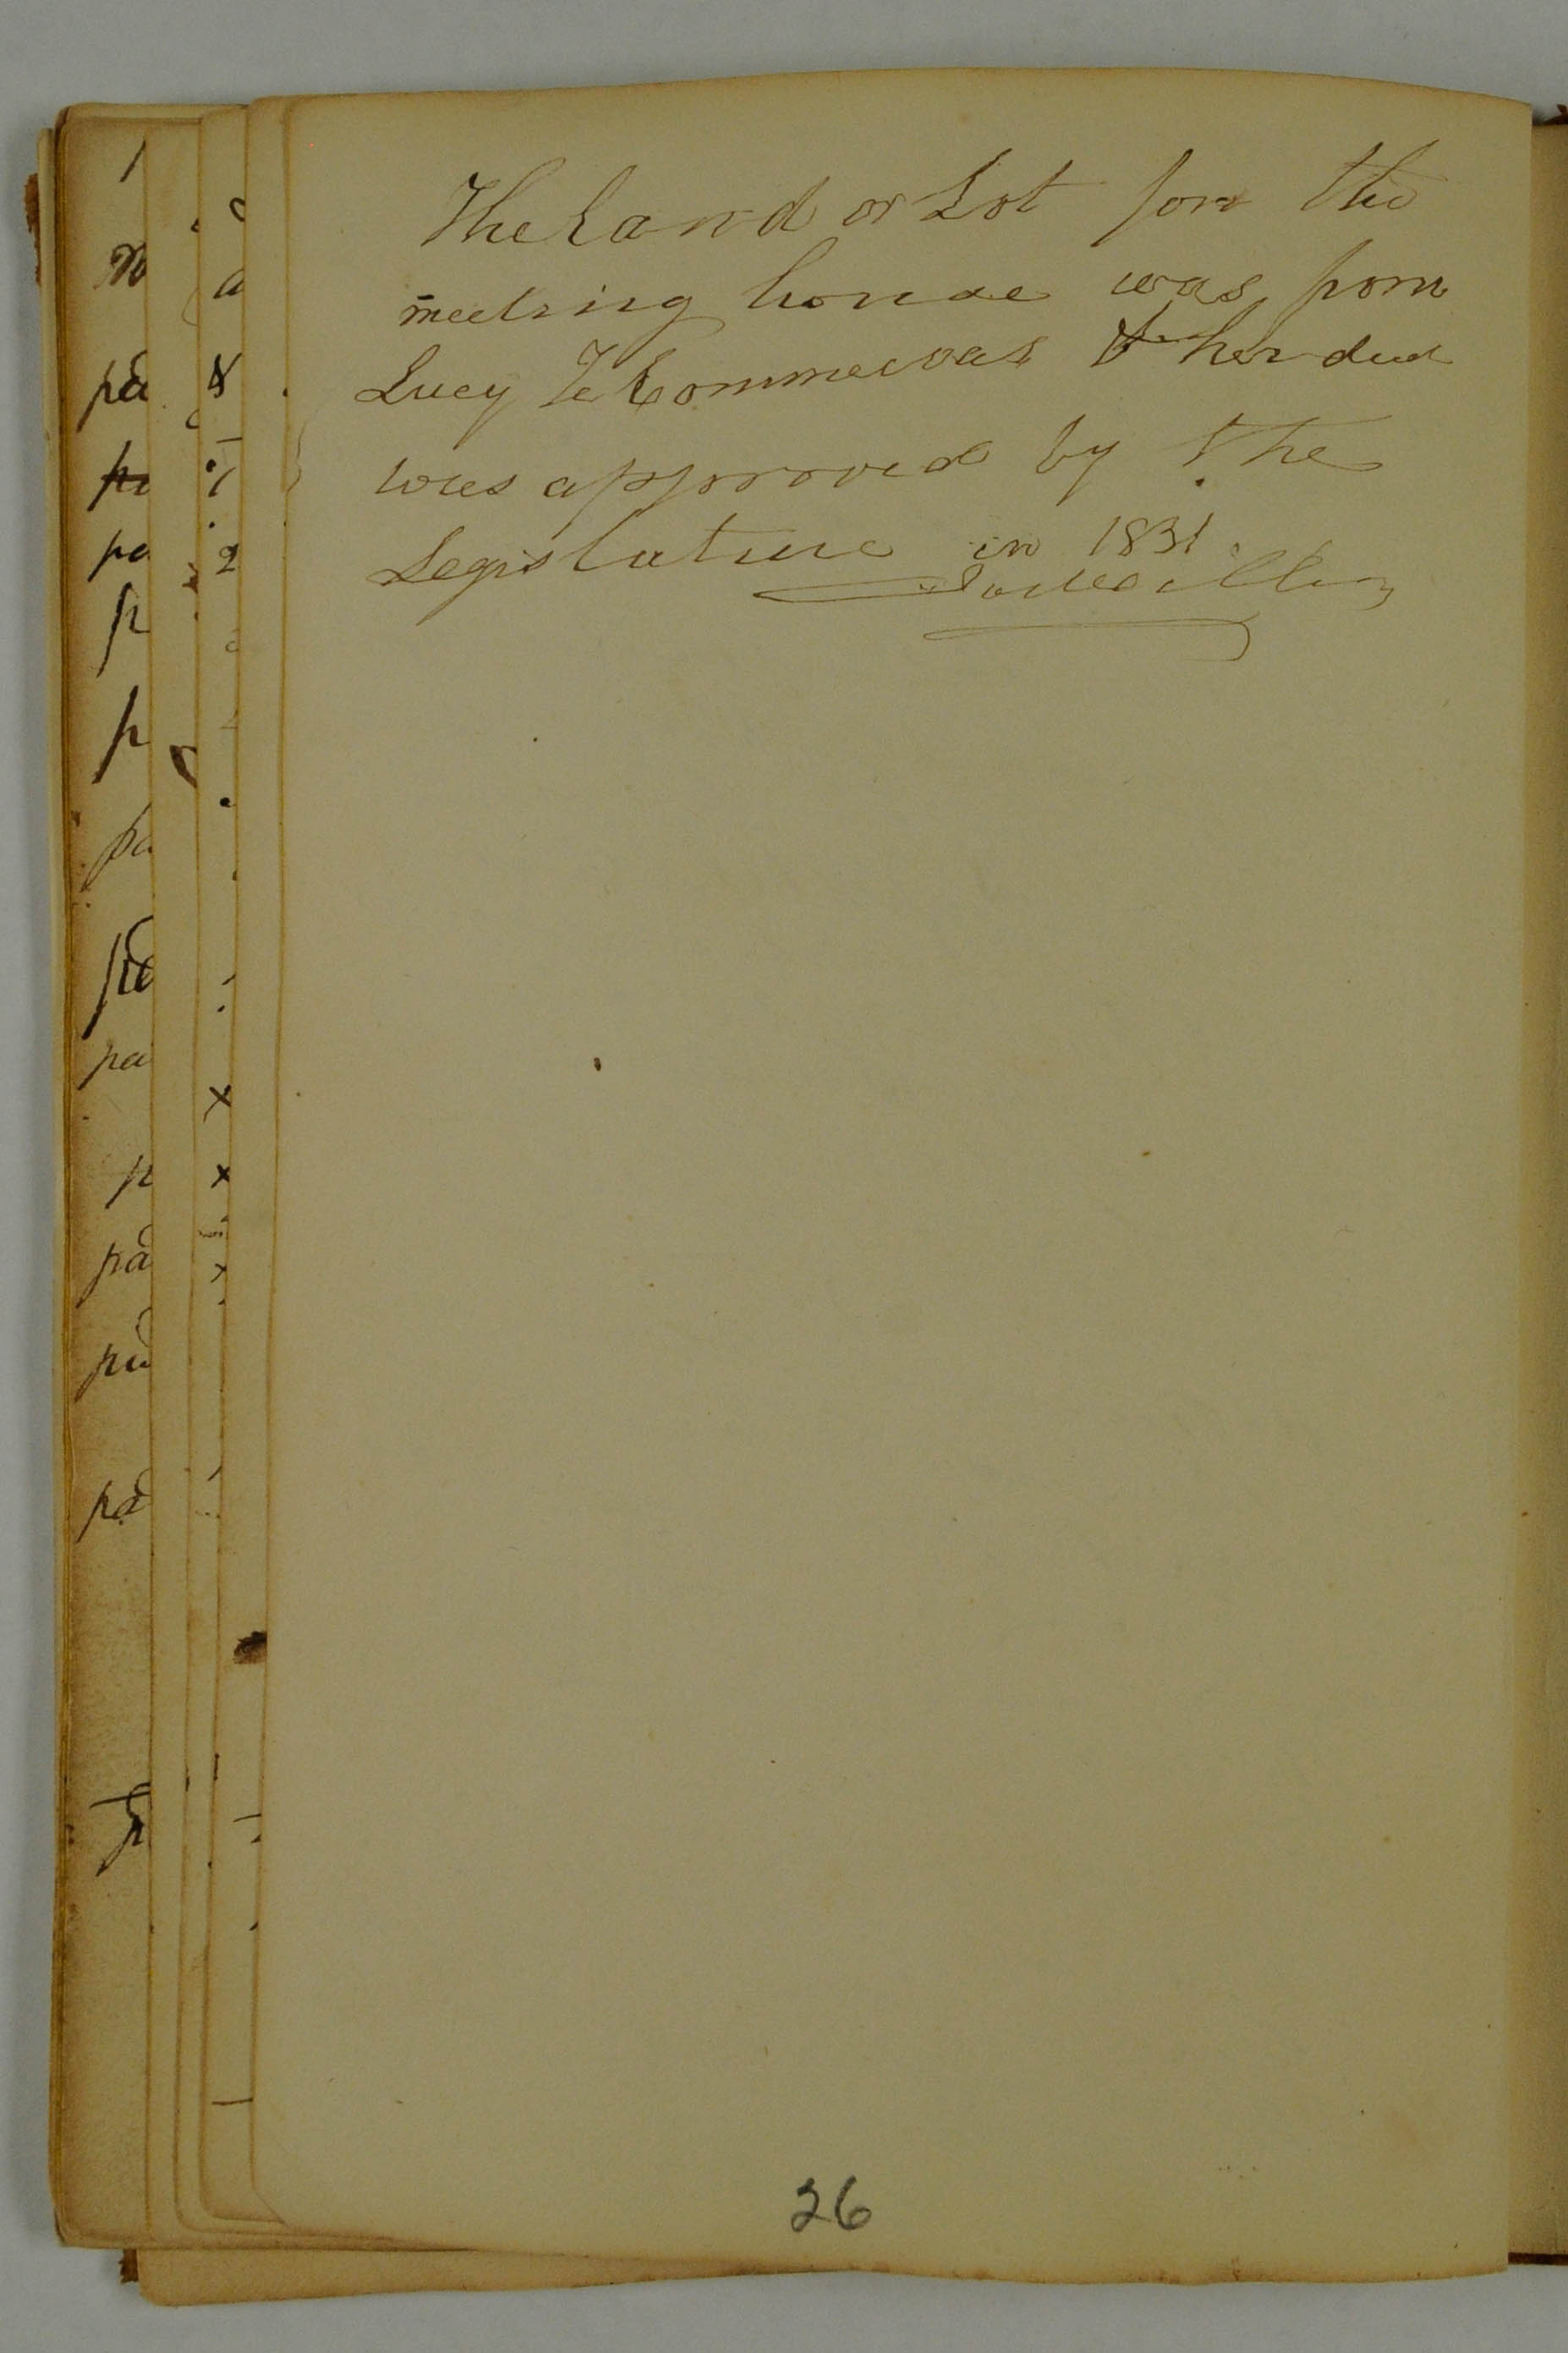 The Land or Lot for the
meeting house was from
Lucy Tecommewas & her deed
was approved by the
Legislature in 1831.
26